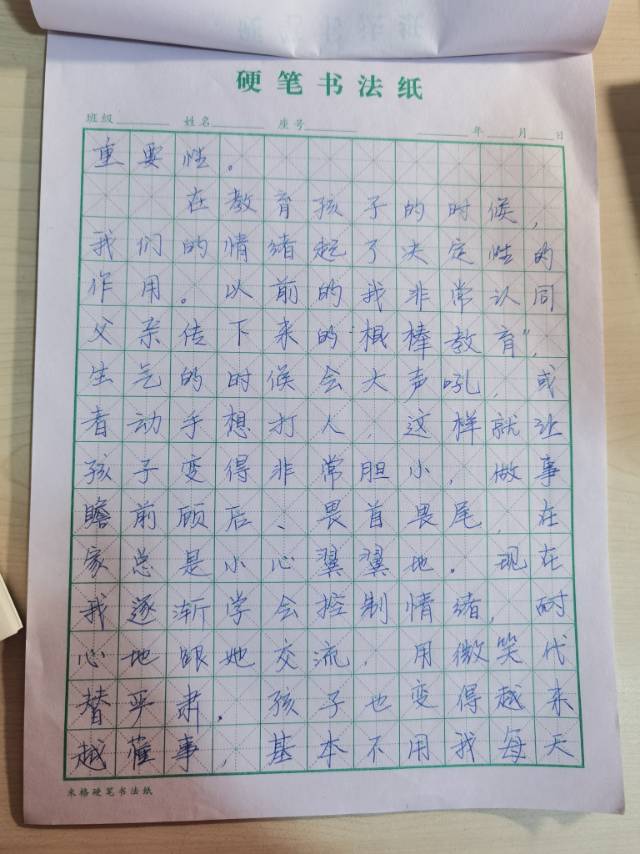 硬笔书法纸
班级 姓名 座号 年 月 日
重要性。
在教育孩子的时候，
我们的情绪起了决定性的
作用。以前的我非常认同
父亲传下来的“棍棒教育”，
生气的时候会大声吼，或
者动手想打人，这样就让
孩子变得非常胆小，做事
瞻前顾后、畏首畏尾，在
家总是小心翼翼地。现在
我逐渐学会控制情绪，耐
心地跟她交流，用微笑代
替严肃，孩子也变得越来
越懂事，基本不用我每天
米格硬笔书法纸